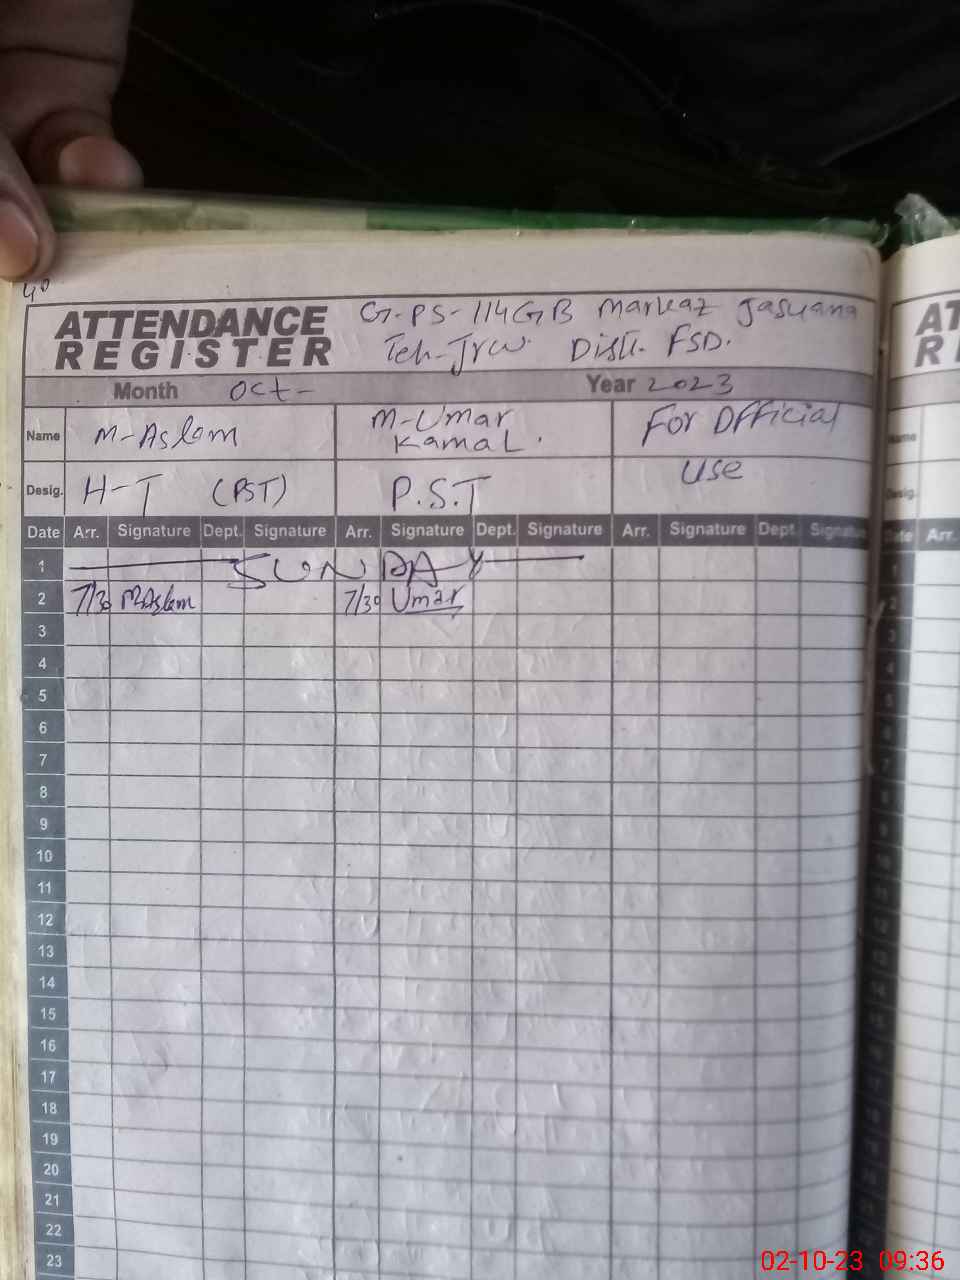 40
ATTENDANCE
REGISTER
G-PS-114GB Markaz Jasuana
Teh-Jrw. Distt. FSD.
Month Oct- Year 2023
Name M-Aslam M-Umar Kamal. For Official
Desig. H-T (PST) P.S.T Use
Date Arr. Signature Dept. Signature Arr. Signature Dept. Signature Arr. Signature Dept. Signature
1 SUNDAY
2 7/30 MAslam 7/30 Umar
3
4
5
6
7
8
9
10
11
12
13
14
15
16
17
18
19
20
21
22
23
AT
R
Name
Desig.
Date Arr.
1
2
3
4
5
6
7
02-10-23 09:36